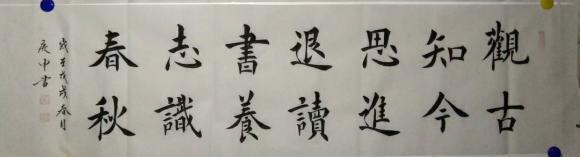 觀古
知今
思進
退讀
書養
志識
春秋
戊戌春月
書